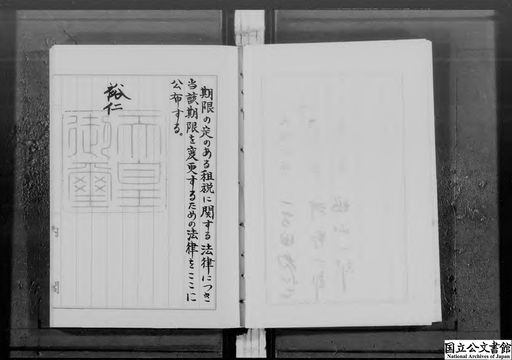 期限の定のある租税に関する法律につき
当該期限を変更するための法律をここに
公布する。
裕仁
天皇
御璽
国立公文書館
National Archives of Japan